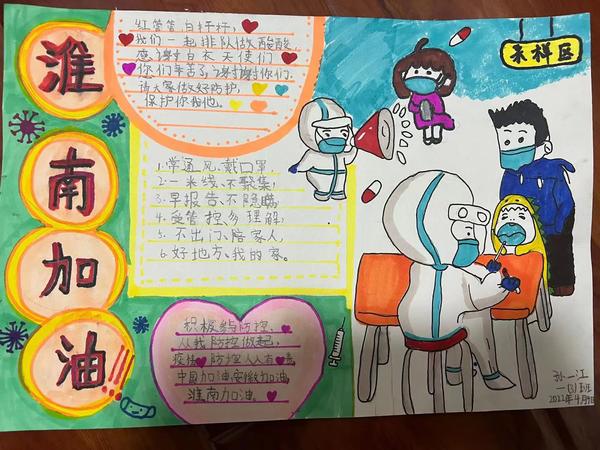 淮
南
加
油
!!!
红管管,白杆杆,
我们一起排队做酸酸
感谢白衣天使们
你们辛苦了,谢谢你们.
请大家做好防护,
保护你我他。
1.常通风、戴口罩
2.一米线、不聚集,
3.早报告、不隐瞒,
4.受管控、多理解,
5.不出门、陪家人,
6.好地方、我的家。
积极参与防控.
从我防控做起,
疫情防控人人有责,
中国加油,安徽加油,
淮南加油。
采样区
孙一江
一(3)班
2022年4月9日